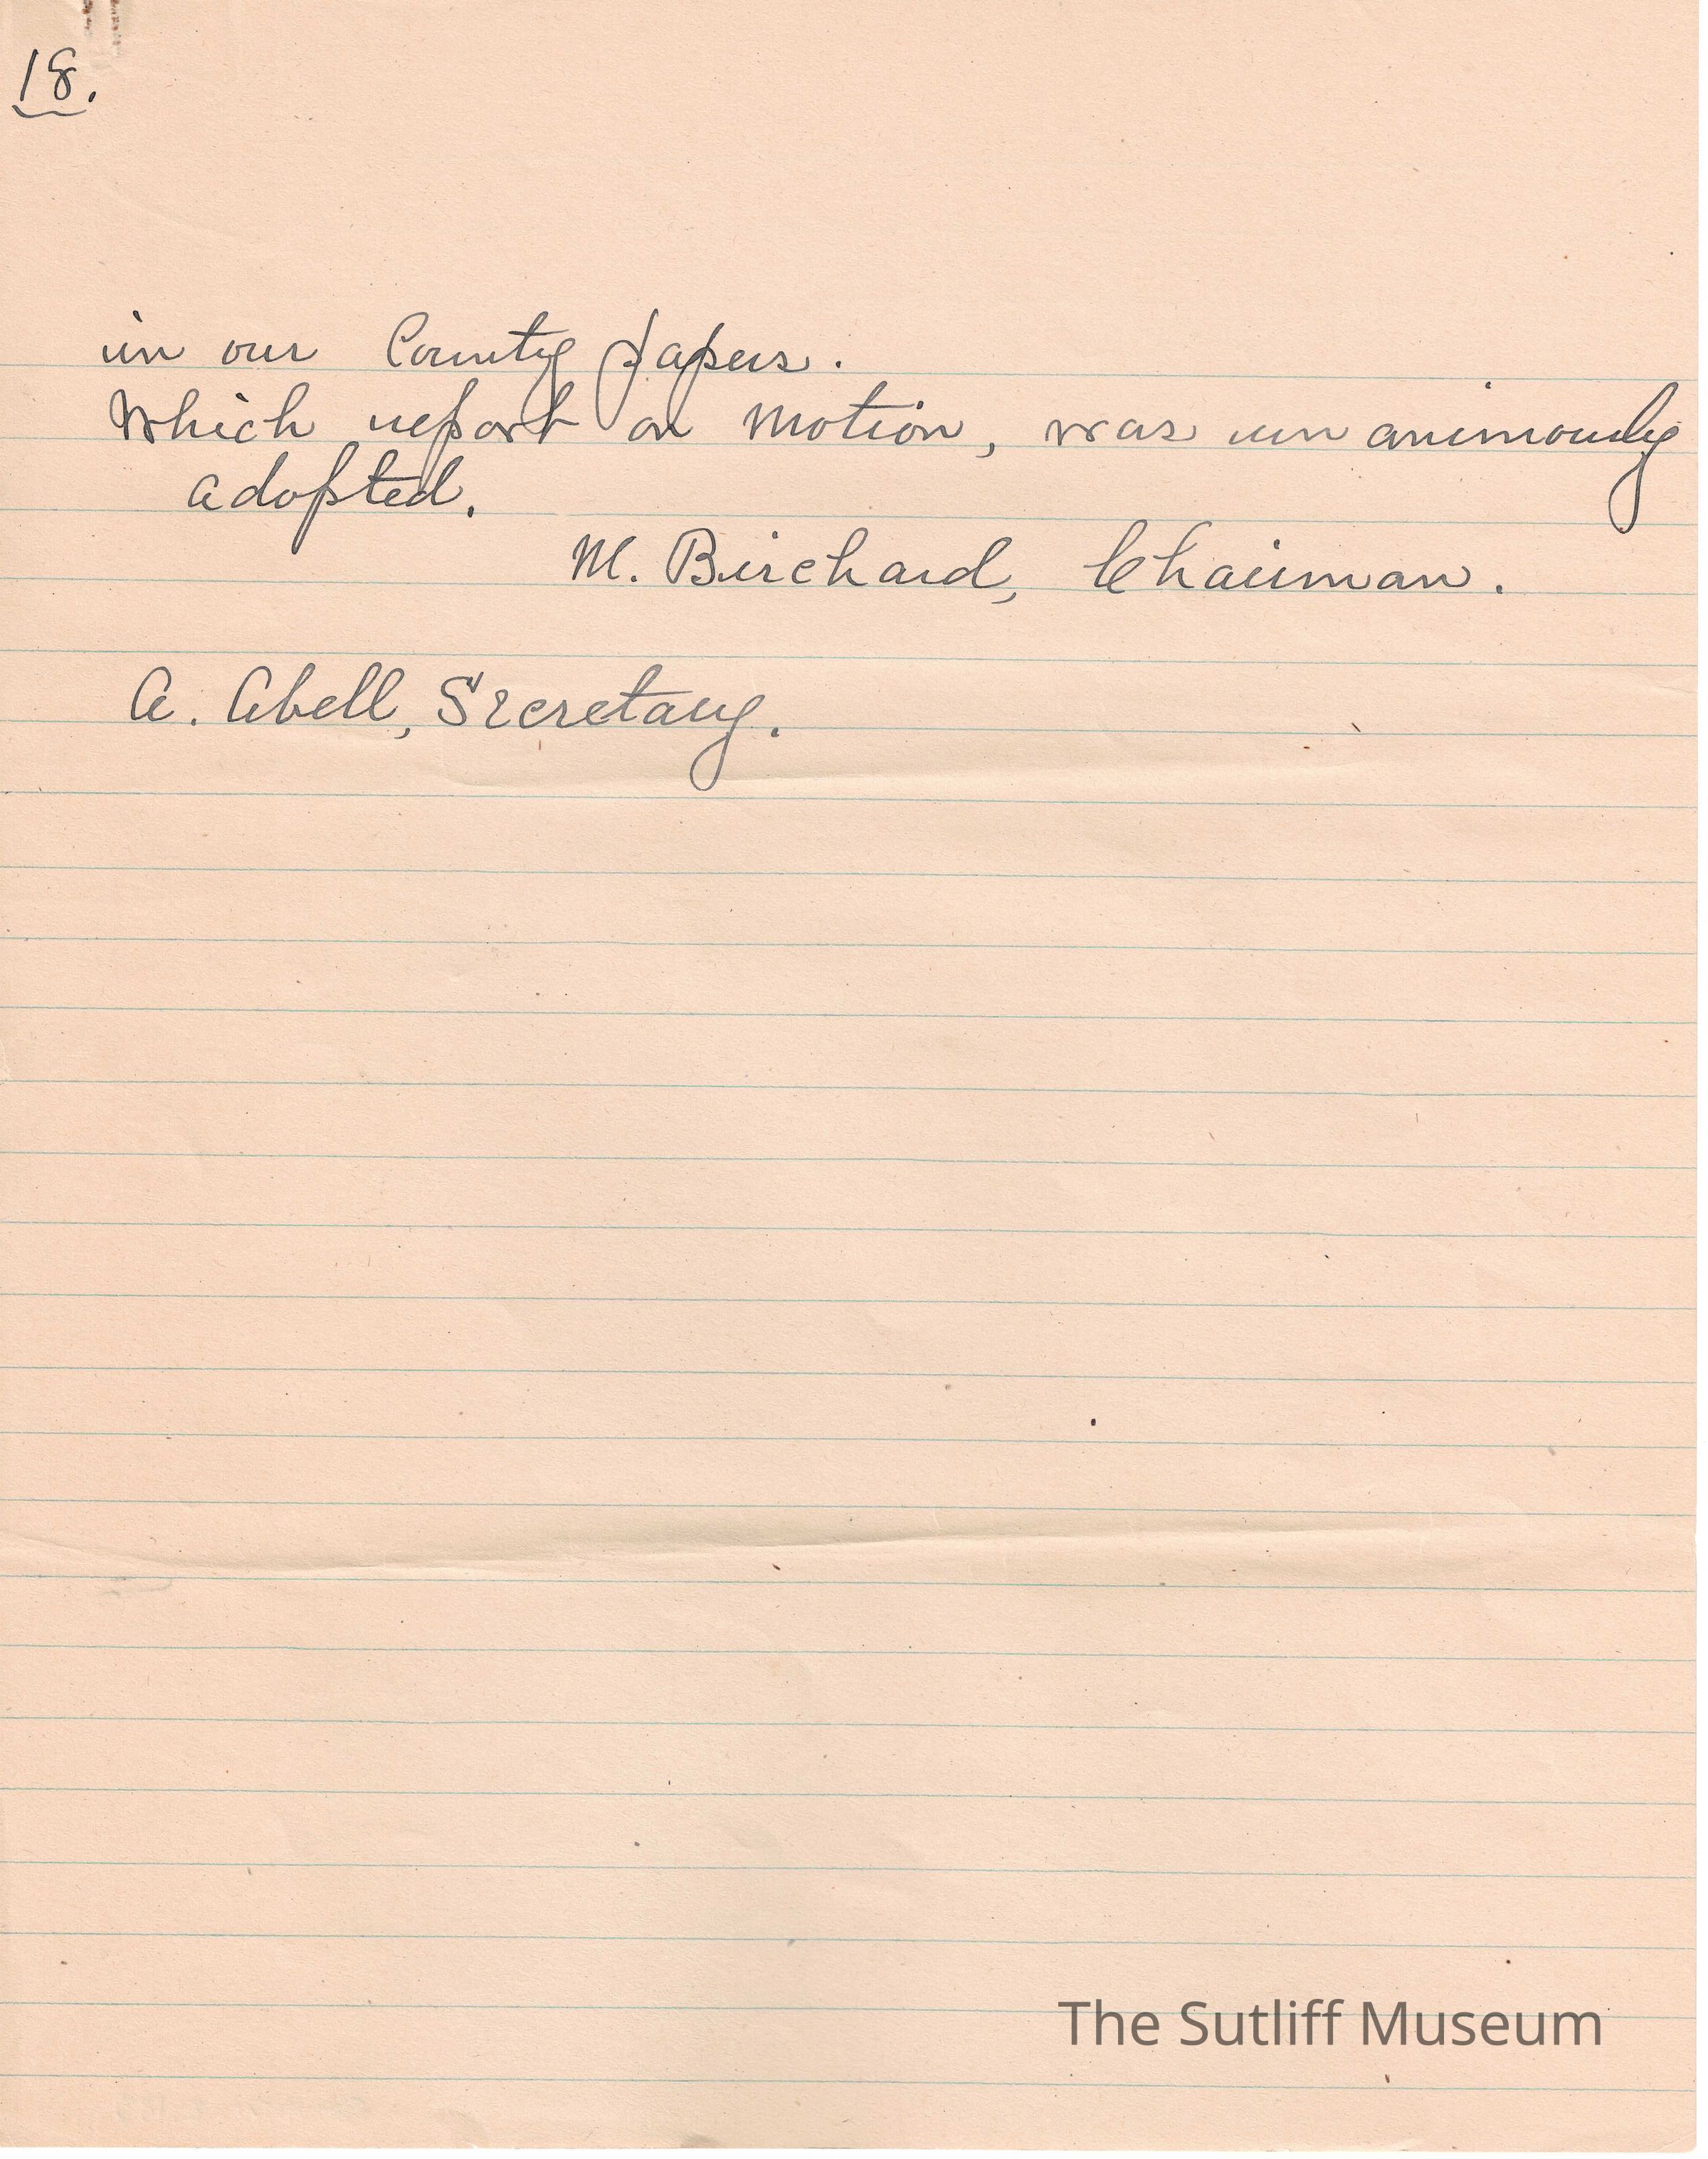 18.
in our County papers.
Which report on motion, was unanimously
adopted.
M. Birchard, Chairman.
A. Abell, Secretary.
The Sutliff Museum